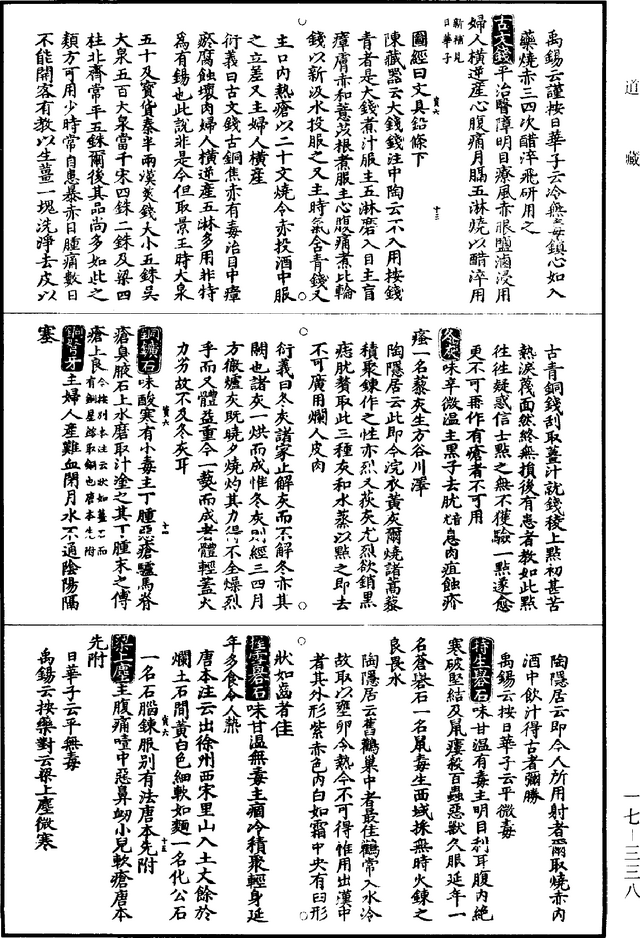 道藏
禹錫云謹按日華子云冷無毒鎮心如入
藥燒赤三四次醋淬飛研用之
古文錢平治瞖障明目療風赤眼鹽滷浸用
婦人橫逆產心腹痛月膈五淋燒以醋淬用
新補見
日華子
圖經曰文具鉛條下
陳藏器云大錢錢注中陶云不入用按錢
青者是大錢煮汁服主五淋磨入目主盲
瘴膚赤和薏苡根煮服主心腹痛煮比輪
錢以新汲水投服之又主時氣含青錢又
主口內熱瘡以二十文燒令赤投酒中服
之立差又主婦人橫產
衍義曰古文錢古銅焦赤有毒治目中瘴
瘀腐蝕壞肉婦人橫逆產五淋多用非特
為有錫也此說非是今但取景王時大泉
五十及寶貨秦半兩漢莢錢大小五銖吳
大泉五百大泉當千宋四銖二銖及梁四
柱北齊常平五銖爾後其品尚多如此之
類方可用少時常自患暴赤目腫痛數日
不能開客有教以生薑一塊洗淨去皮以
古青銅錢刮取薑汁就錢稜上點初甚苦
熱淚蔑面然終無損後有患者教如此點
往往疑惑信士點之無不獲驗一點遂愈
更不可再作有瘡者不可用
冬灰味辛微溫主黑子去肬息肉疽蝕疥
瘙一名藜灰生方谷川澤
陶隱居云此即今浣衣黃灰爾燒諸蒿藜
積聚鍊作之性亦烈又荻灰尤烈欲銷黑
痣肬贅取此三種灰和水蒸以點之即去
不可廣用爛人皮肉
衍義曰冬灰諸家止解灰而不解冬亦其
闕也諸灰一烘而成惟冬灰則經三四月
方徹爐灰既曉夕燒灼其力得不全燥烈
乎而又體益重今一爇而成者體輕蓋火
力劣故不及冬灰耳
銅鑛石味酸寒有小毒主丁腫惡瘡驢馬脊
瘡臭腋石上水磨取汁塗之其丁腫末之傅
瘡上良
銅青牙主婦人產難血閉月水不通陰陽隔
塞
陶隱居云即今人所用射者爾取燒赤內
酒中飲汁得古者彌勝
禹錫云按日華子云平微毒
特生礜石味甘溫有毒主明目利耳腹內絕
寒破堅結及鼠瘻殺百蟲惡獸久服延年一
名蒼礜石一名鼠毒生西域採無時火鍊之
良畏水
陶隱居云舊鸛巢中者最佳鸛常入水冷
故取以壅卵令熱今不可得惟用出漢中
者其外形紫赤色內白如霜中央有臼形
狀如齒者佳
握雪礜石味甘溫無毒主痼冷積聚輕身延
年多食令人熱
唐本注云出徐州西宋里山入土丈餘於
爛土石間黃白色細軟如麵一名化公石
一名石腦鍊服別有法唐本先附
梁上塵主腹痛噎中惡鼻衄小兒軟瘡唐本
先附
日華子云平無毒
禹錫云按藥對云梁上塵微寒
一七—三三八